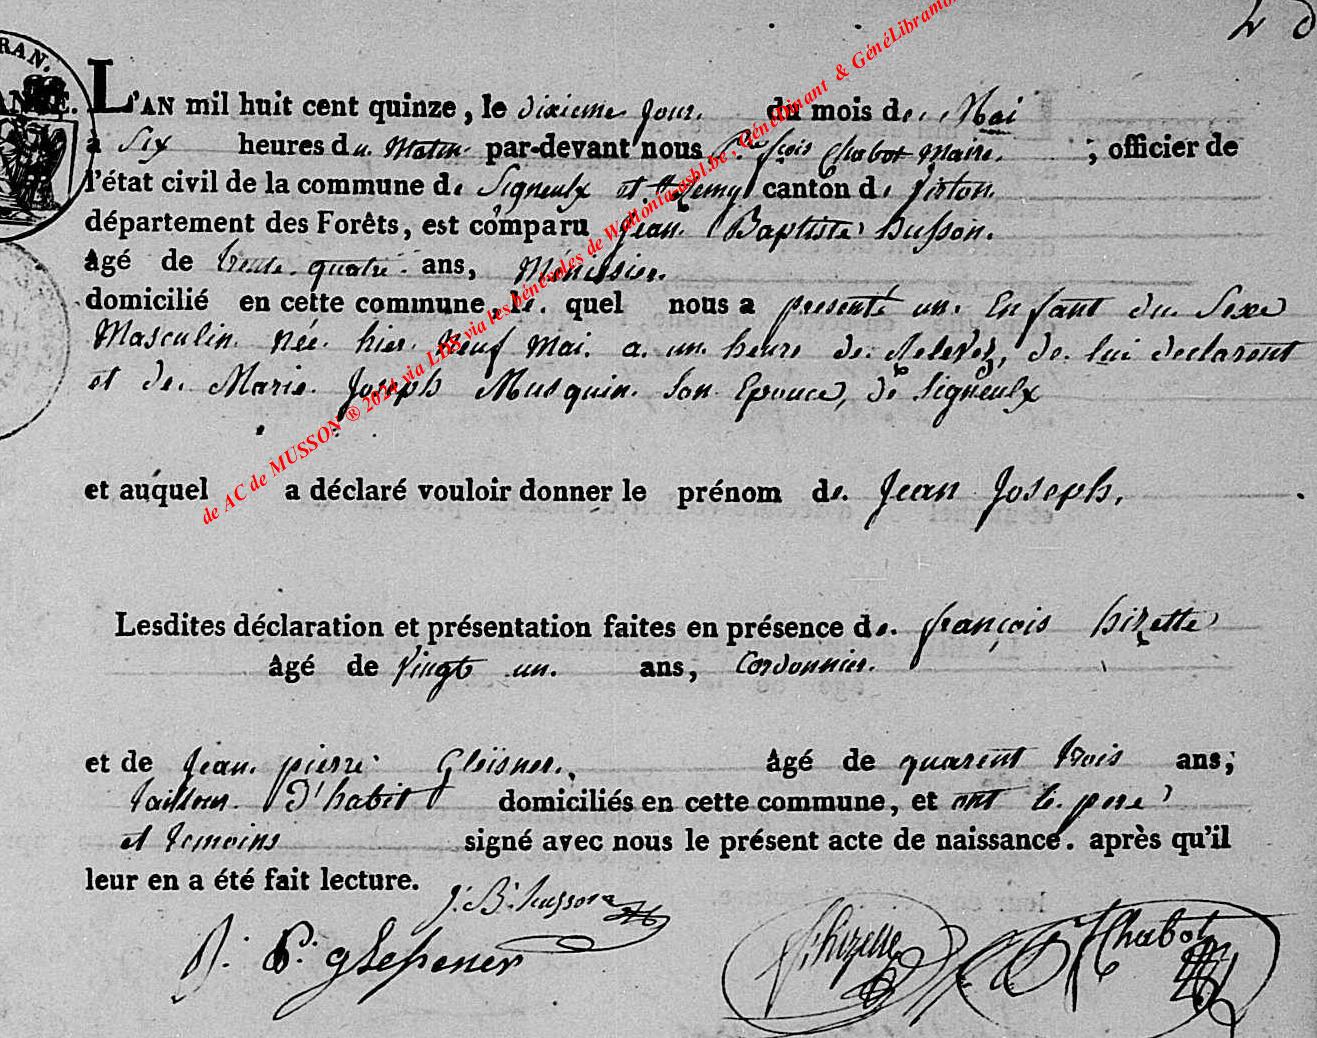 RAN.
L'AN mil huit cent quinze, le dixieme jour du mois de Mai
à Six heures du Matin par-devant nous fçois Chabot Maire ; officier de
l'état civil de la commune de Signeulx et St Remy canton de Virton
département des Forêts, est comparu Jean Baptiste husson.
âgé de trente quatre ans, Menissier.
domicilié en cette commune, le quel nous a presenté un Enfant du Sexe
Masculin née hier Neuf Mai a un heure de relevez, de lui declarent
et de Marie Joseph Musquin Son Epouce, de Signeulx
et auquel a déclaré vouloir donner le prénom de Jean Joseph,
Lesdites déclaration et présentation faites en présence de françois hizette
âgé de Vingt un ans, Cordonnier.
et de Jean pierre Gleisner, âgé de quarent trois ans;
tailleur D'habit domiciliés en cette commune, et ont le pere
et temoins signé avec nous le présent acte de naissance. après qu'il
leur en a été fait lecture.
J. B. husson
J. P. glesener
f. hizette
Chabot
de AC de MUSSON ® 2024 via LDS via les bénévoles de Wallonia-asbl.be, GénéDinant & GénéLibramont